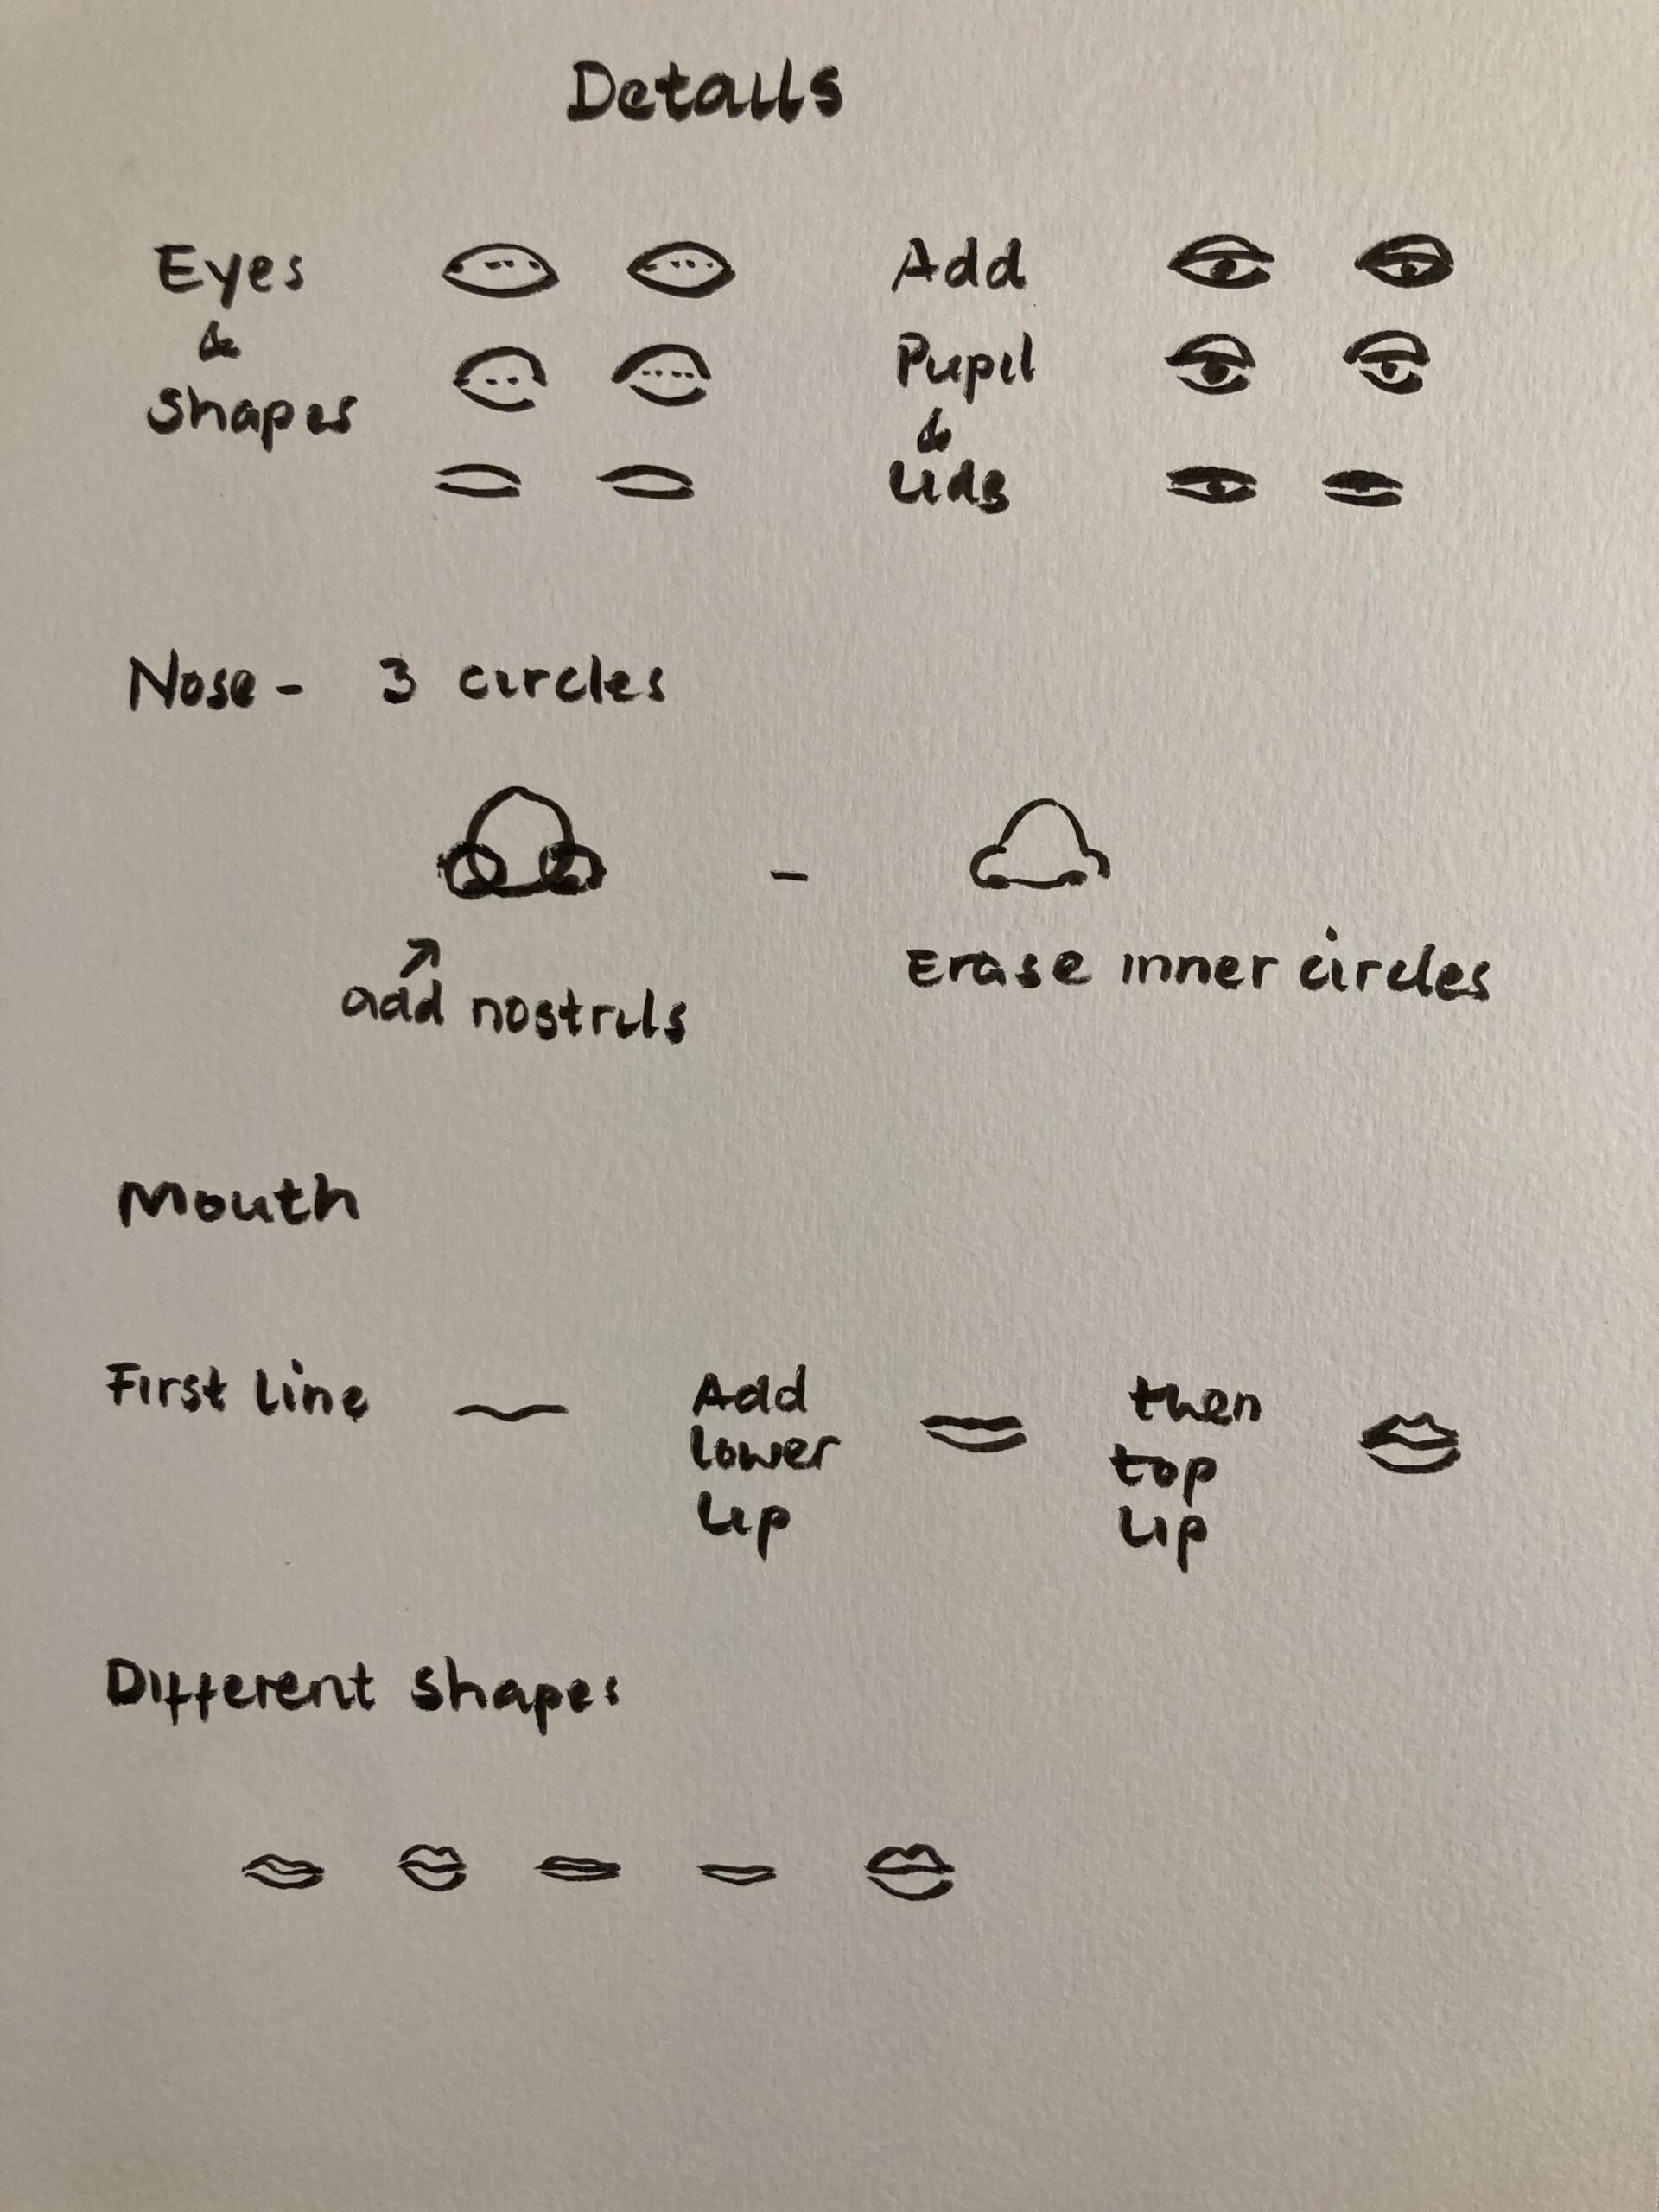 Details
Eyes
&
Shapes
Add
Pupil
&
Lids
Nose - 3 circles
add nostrils
Erase inner circles
Mouth
First line
Add
lower
lip
then
top
lip
Different shapes